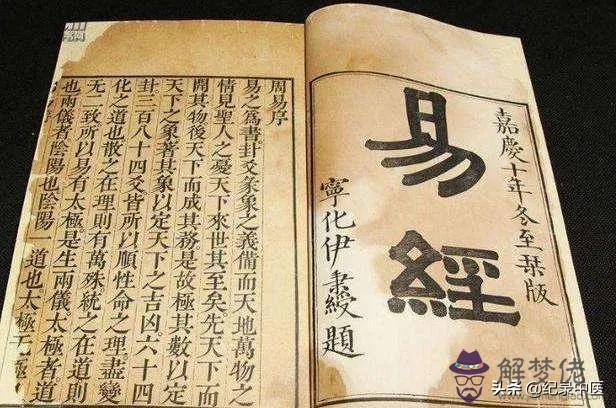 嘉慶十年冬至栞版
易經
寧化伊秉綬題
周易序
易之爲書卦爻彖象之義備而天地萬物之
情見聖人之憂天下來世其至矣先天下而
開其物後天下而成其務是故極其數以定
天下之象著其象以定天下之吉凶六十四
卦三百八十四爻皆所以順性命之理盡變
化之道也散之在理則有萬殊統之在道則
无一致所以易有太極是生兩儀太極者道
也兩儀者陰陽也陰陽一道也太極无極
解梦佬
头条 @纪录中医